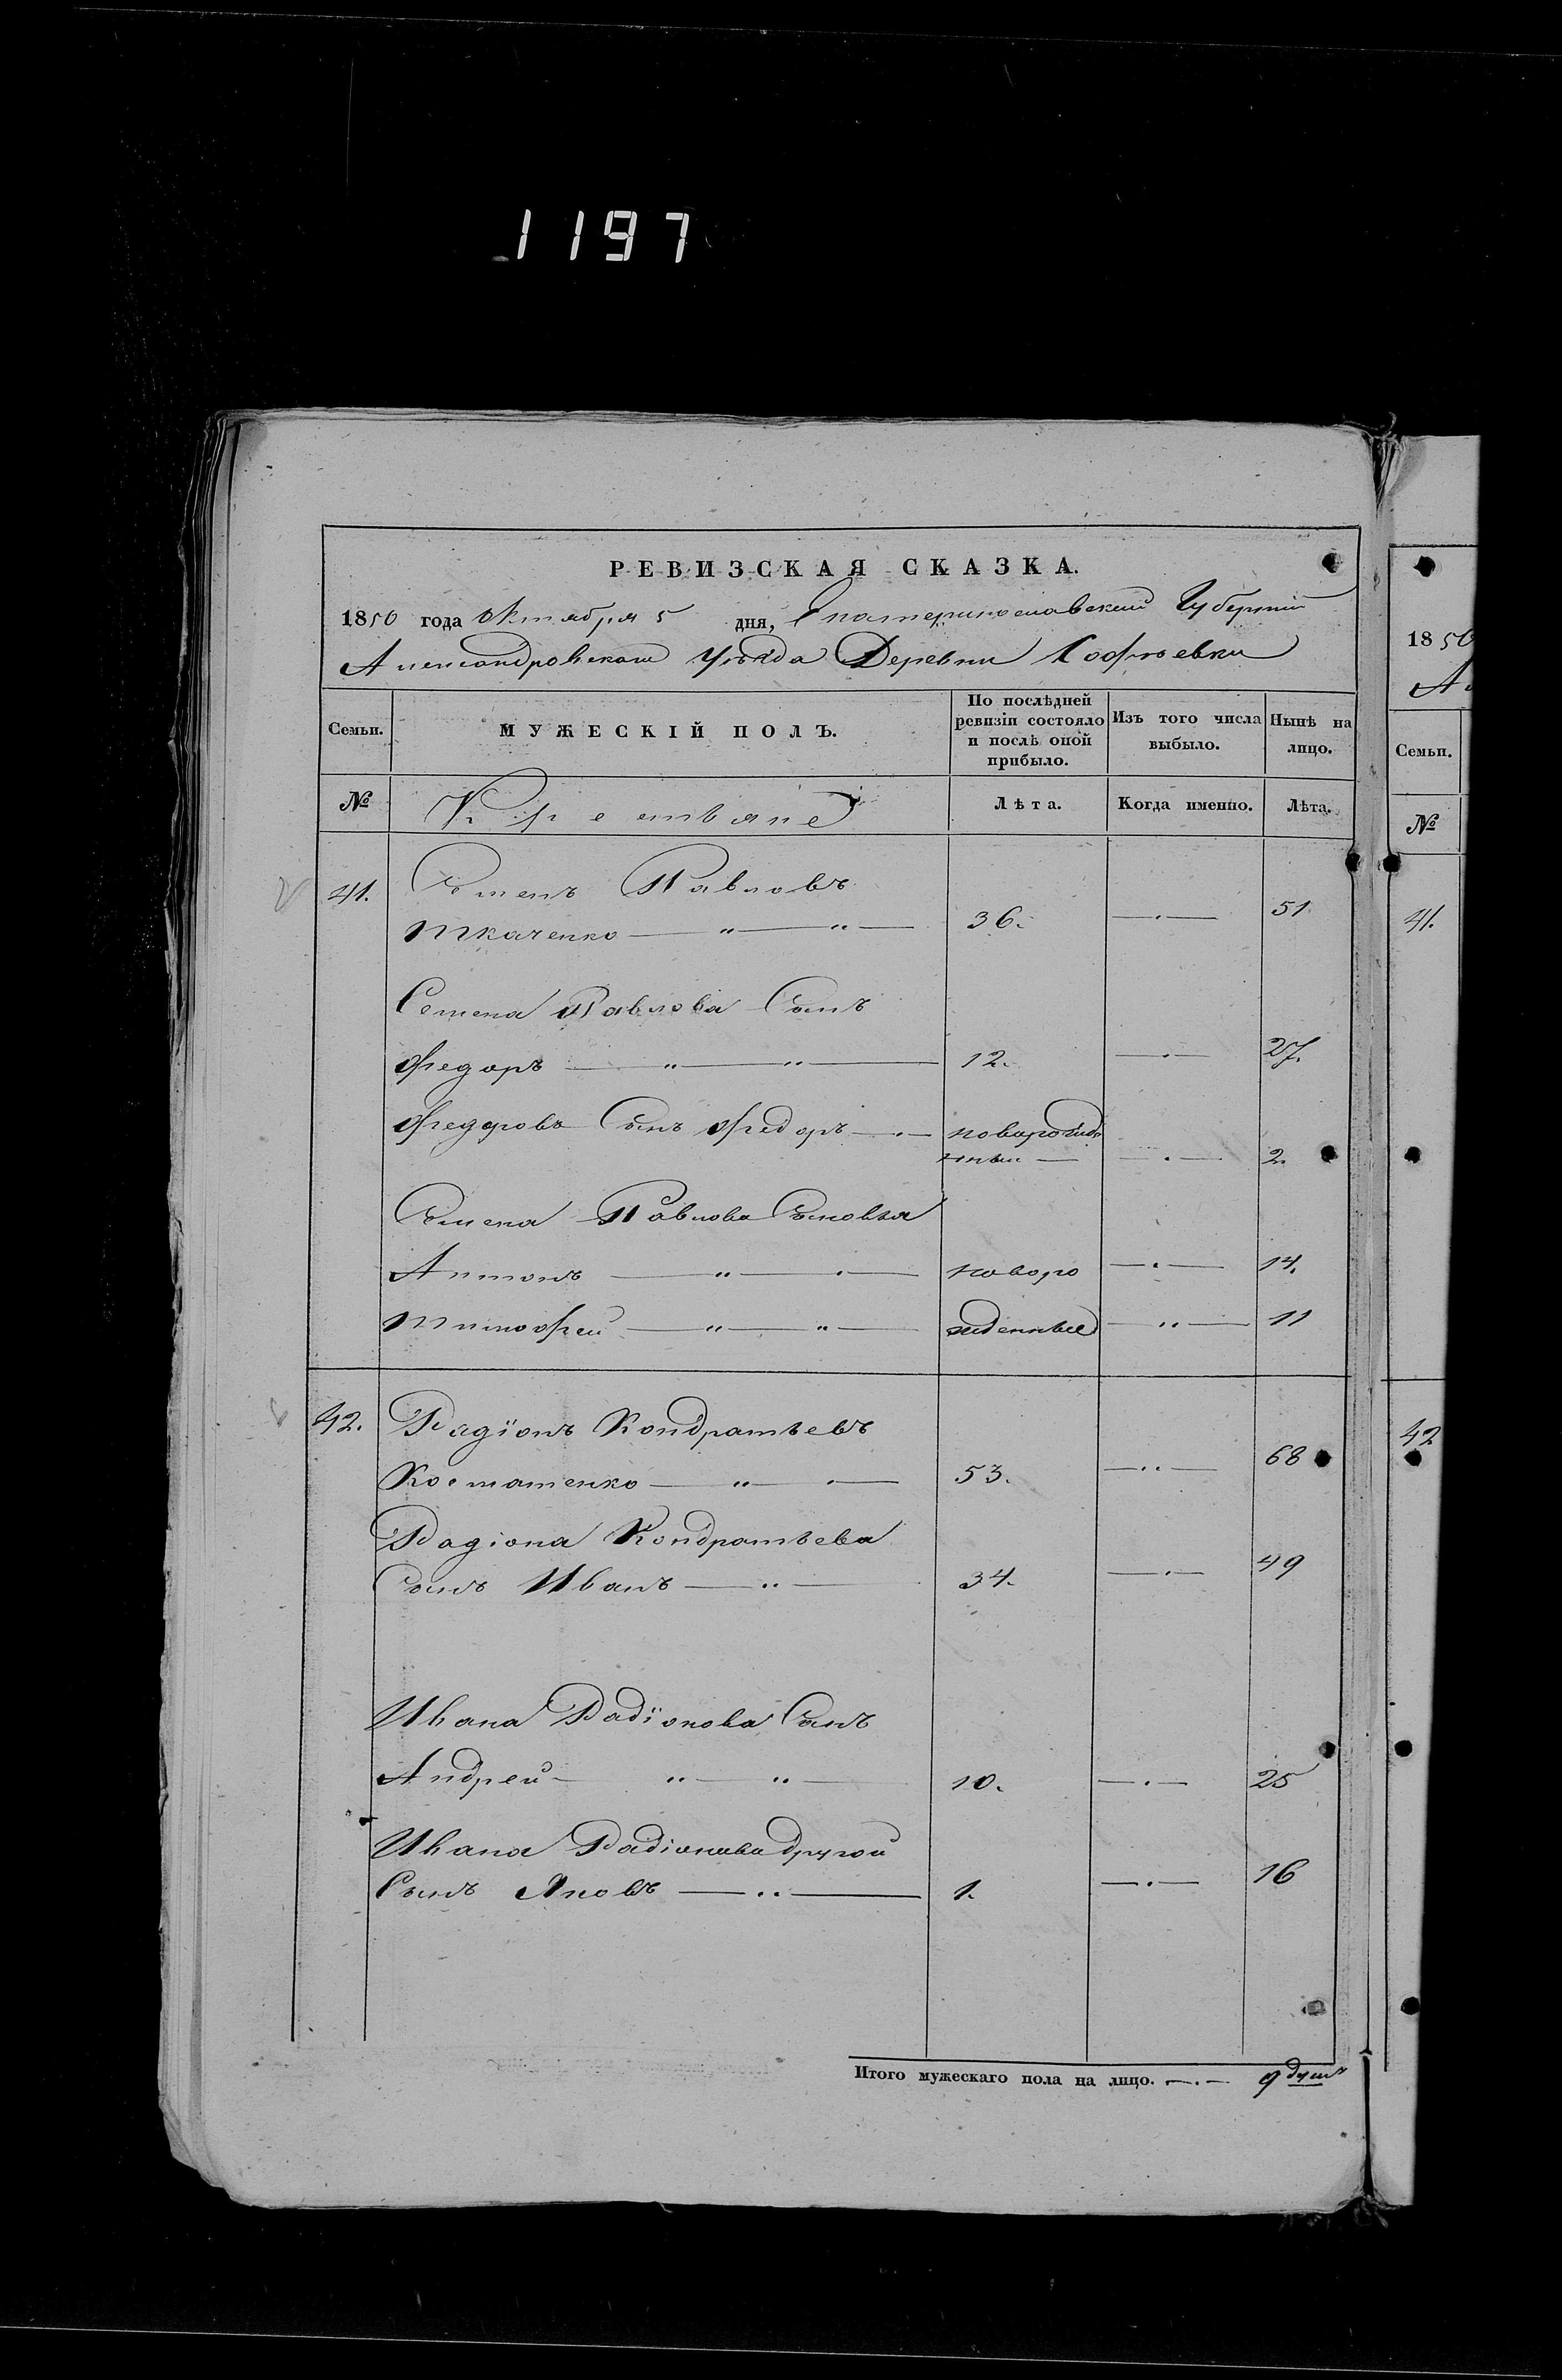 1197
РЕВИЗСКАЯ СКАЗКА.
1850 года Октября 5 дня, Екатеринославской Губерніи
Александровскаго Уѣзда Деревни Софіевки
Семьи. МУЖЕСКІЙ ПОЛЪ. По послѣдней ревизіи состояло и послѣ оной прибыло. Изъ того числа выбыло. Нынѣ на лицо.
№ Крестьяне Лѣта. Когда именно. Лѣта.
41. Семенъ Павловъ
Ткаченко 36. 51
Семена Павлова Сынъ
Федоръ 12. 27.
Федоровъ Сынъ Федоръ новорожде
нный 2.
Семена Павлова Сыновья
Антонъ новоро 14.
Тимофей жденные 11
42. Радіонъ Кондратьевъ
Костатенко 53. 68
Радіона Кондратьева
Сынъ Иванъ 34. 49
Ивана Радіонова Сынъ
Андрей 10. 25
Ивана Радіонова другой
Сынъ Яковъ 1. 16
Итого мужескаго пола на лицо. 9 душъ
1850
Семьи.
№
41.
42